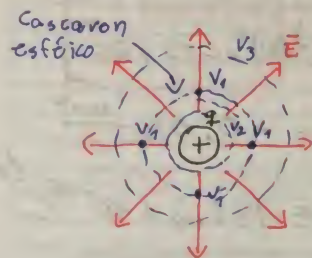 Cascaron
esféico
V₃
E̅
V₁
q
V₁
V₂
V₁
+
V₁